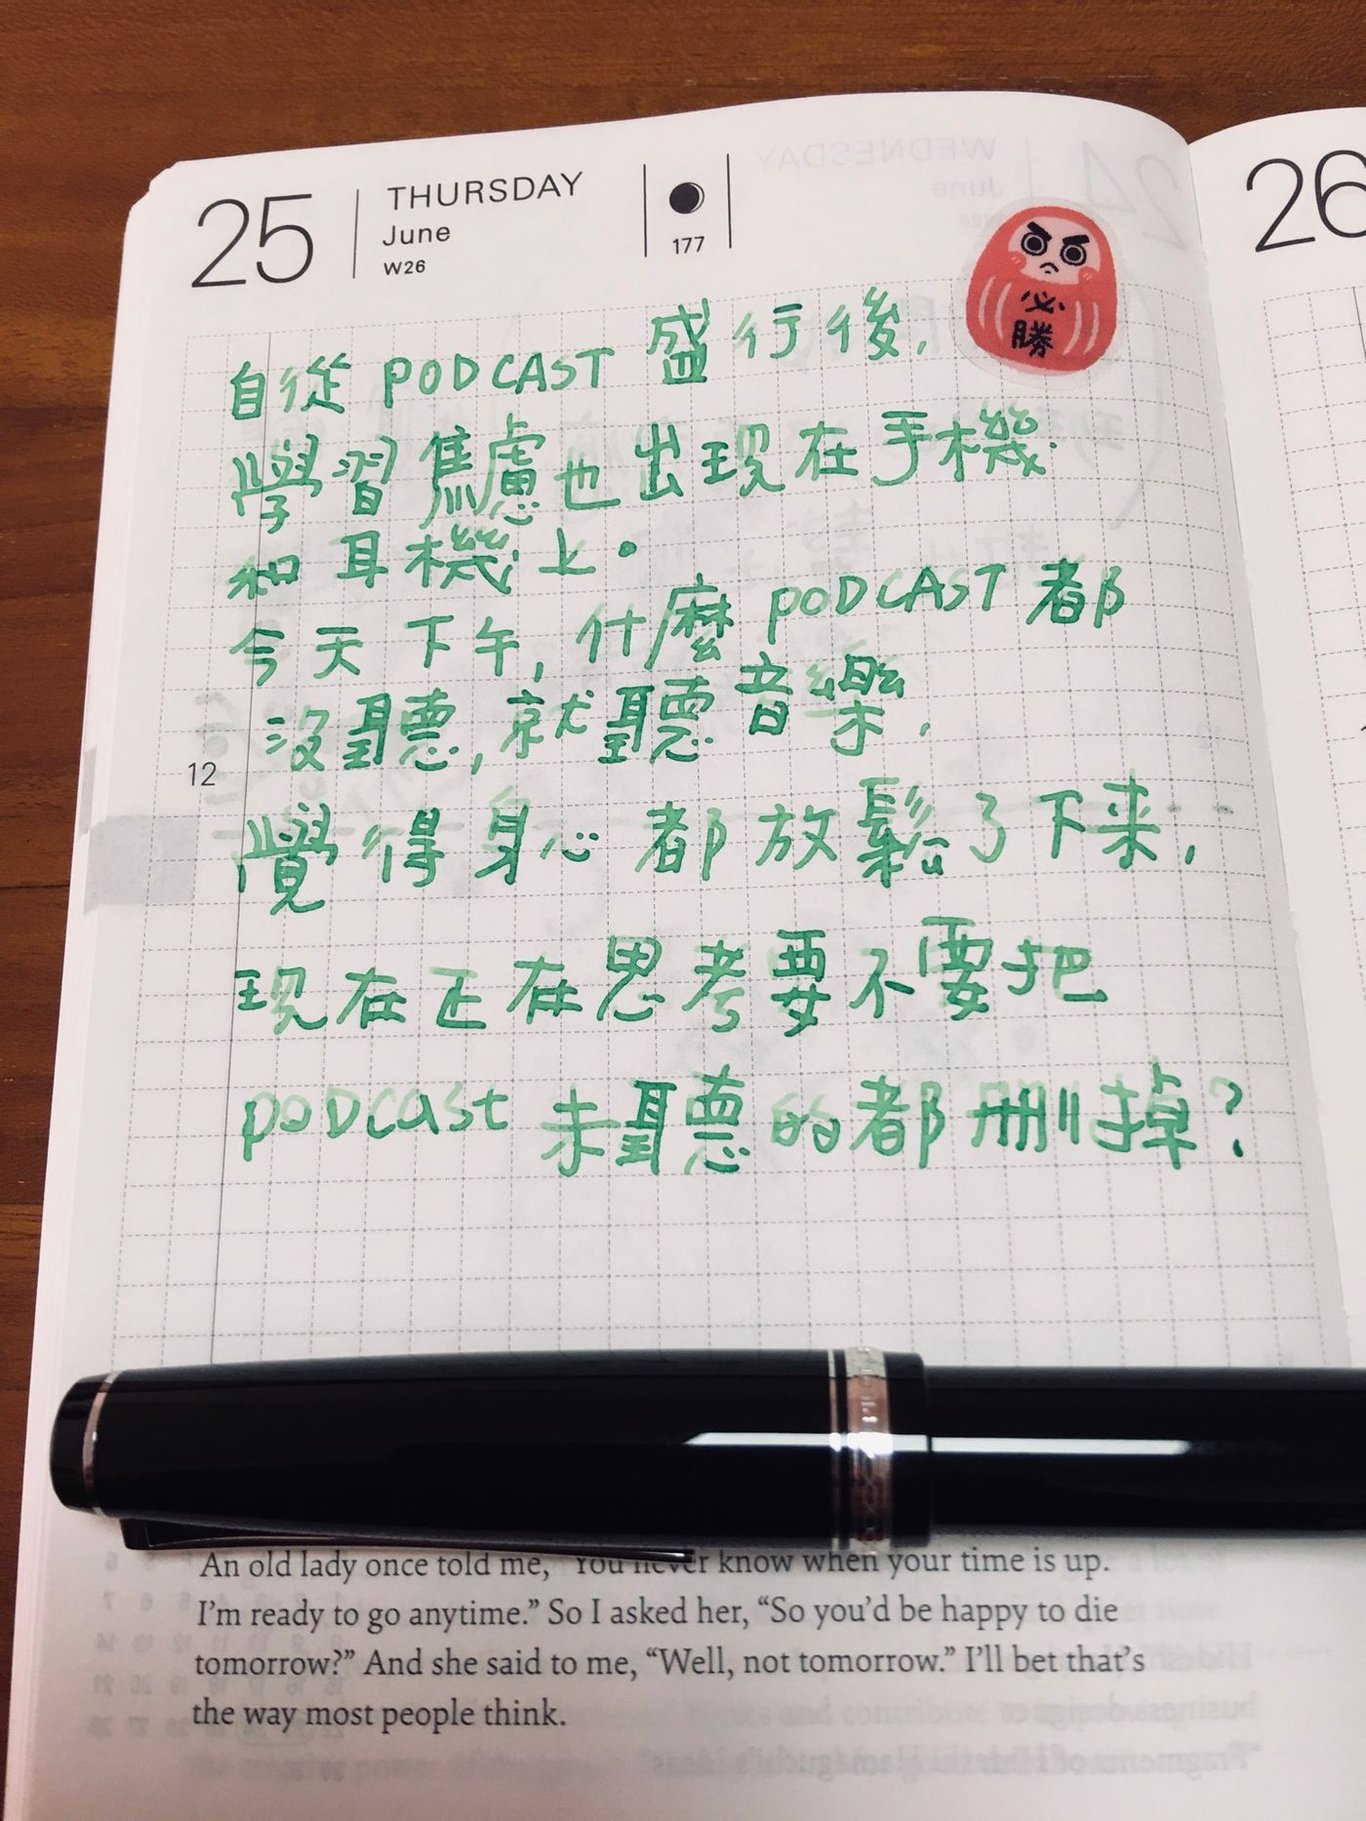 25
THURSDAY
June
W26
177
26
必
勝
自從 PODCAST 盛行後,
學習焦慮也出現在手機
和耳機上。
今天下午,什麼 PODCAST 都
沒聽,就聽音樂,
12
覺得身心都放鬆了下來,
現在正在思考要不要把
PODCast 未聽的都刪掉?
An old lady once told me, "You never know when your time is up.
I'm ready to go anytime." So I asked her, "So you'd be happy to die
tomorrow?" And she said to me, "Well, not tomorrow." I'll bet that's
the way most people think.